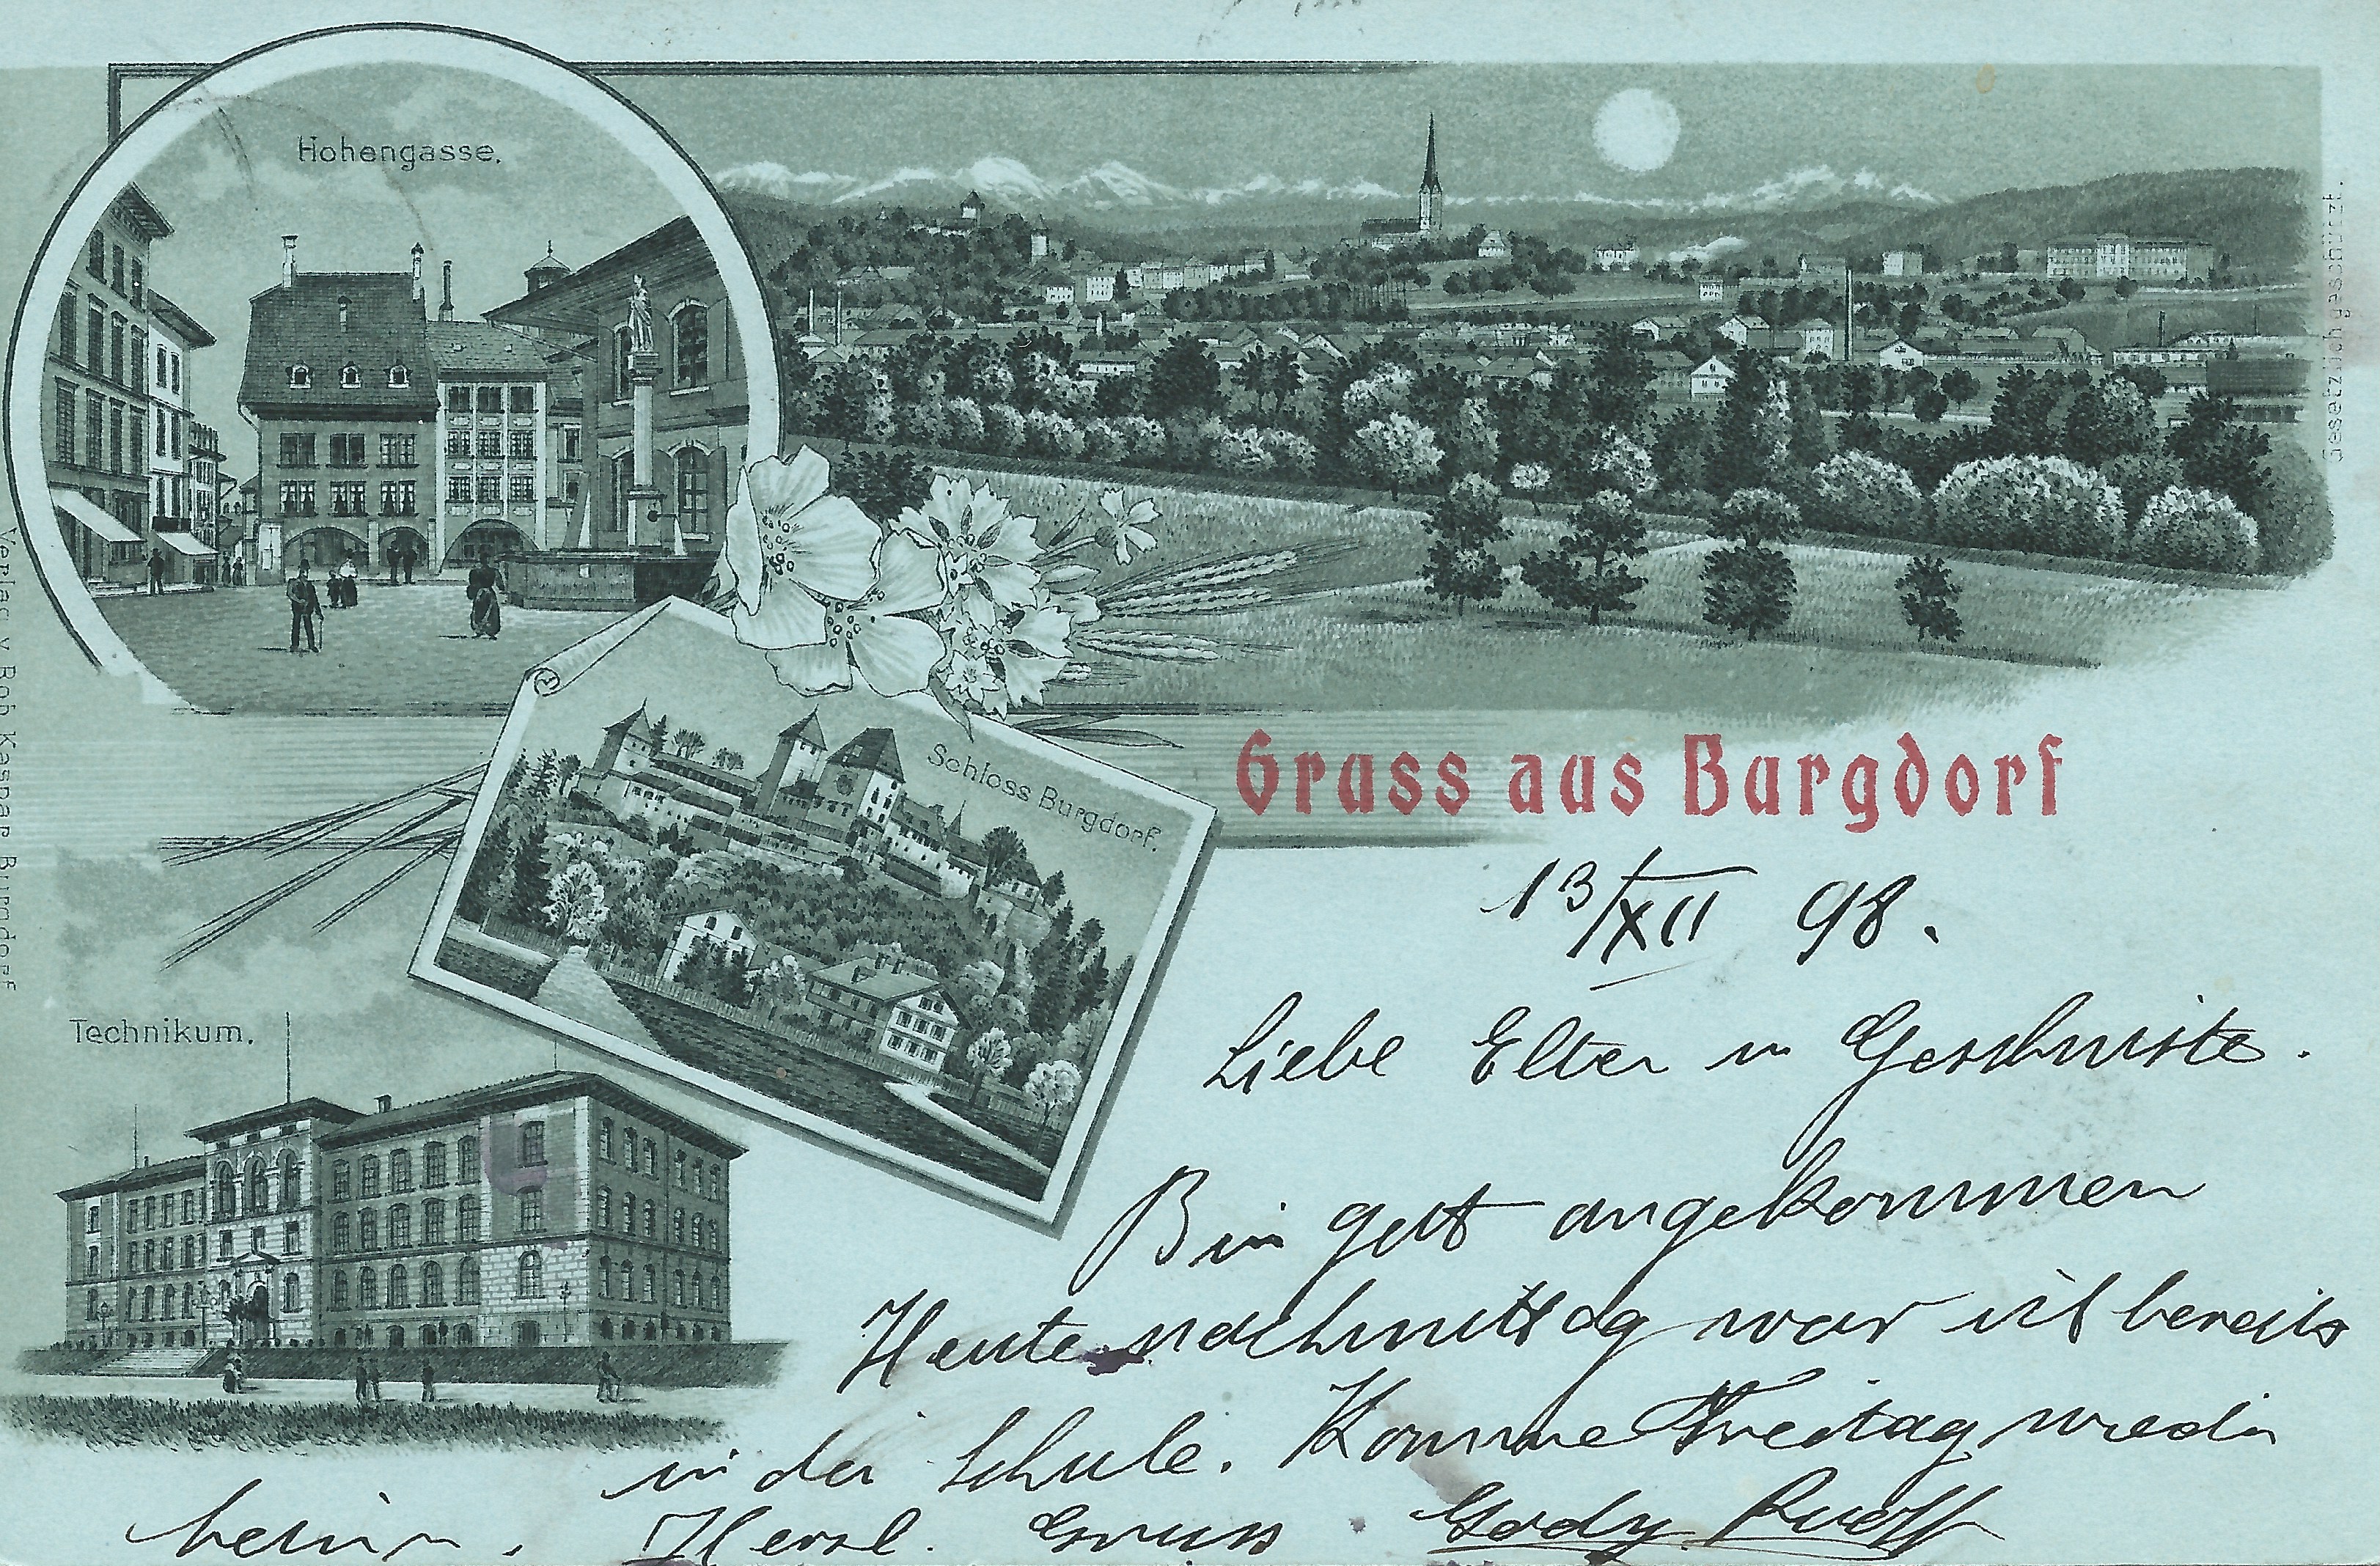 Hohengasse.
Gesetzlich geschützt.
Verlag v. Rob. Kaspar Burgdorf
Schloss Burgdorf.
Gruss aus Burgdorf
Technikum.
13/XII 98.
Liebe Elter u Geschwiste.
Bin gut angekommen
Heute nachmittag war ich bereits
in der Schule. Komme Freitag wieder
heim. Herzl. Gruss Gody Ruoff